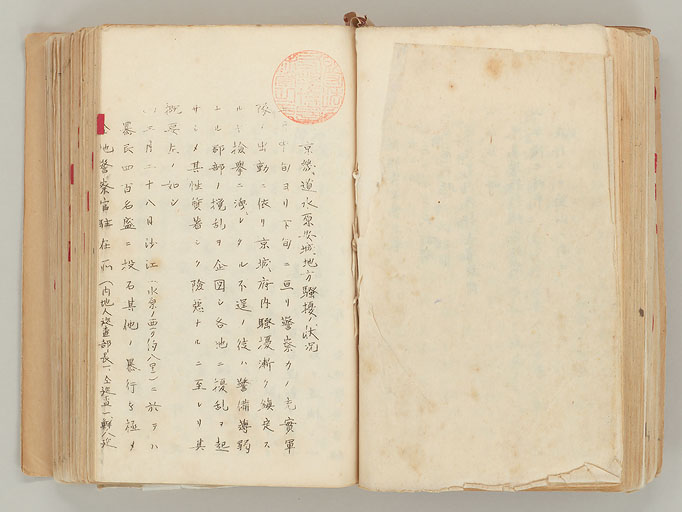 京畿道水原安城地方騒擾ノ状況
中旬ヨリ下旬ニ亘リ警察力ノ充實軍
隊ノ出動ニ依リ京城府内騒擾漸ク鎮定ス
ルモ検挙ニ漏レタル不逞ノ徒ハ警備薄弱
ナル郡部ノ擾乱ヲ企図シ各地ニ擾乱ヲ起
サシメ其性質著シク険悪ナルニ至レリ其
概要左ノ如シ
三月二十八日沙江(水原ノ西方約八里)ニ於テハ
暴民四百名盛ニ投石其他ノ暴行ヲ極メ
地警察官駐在所(内地人巡査部長一仝巡査一鮮人巡